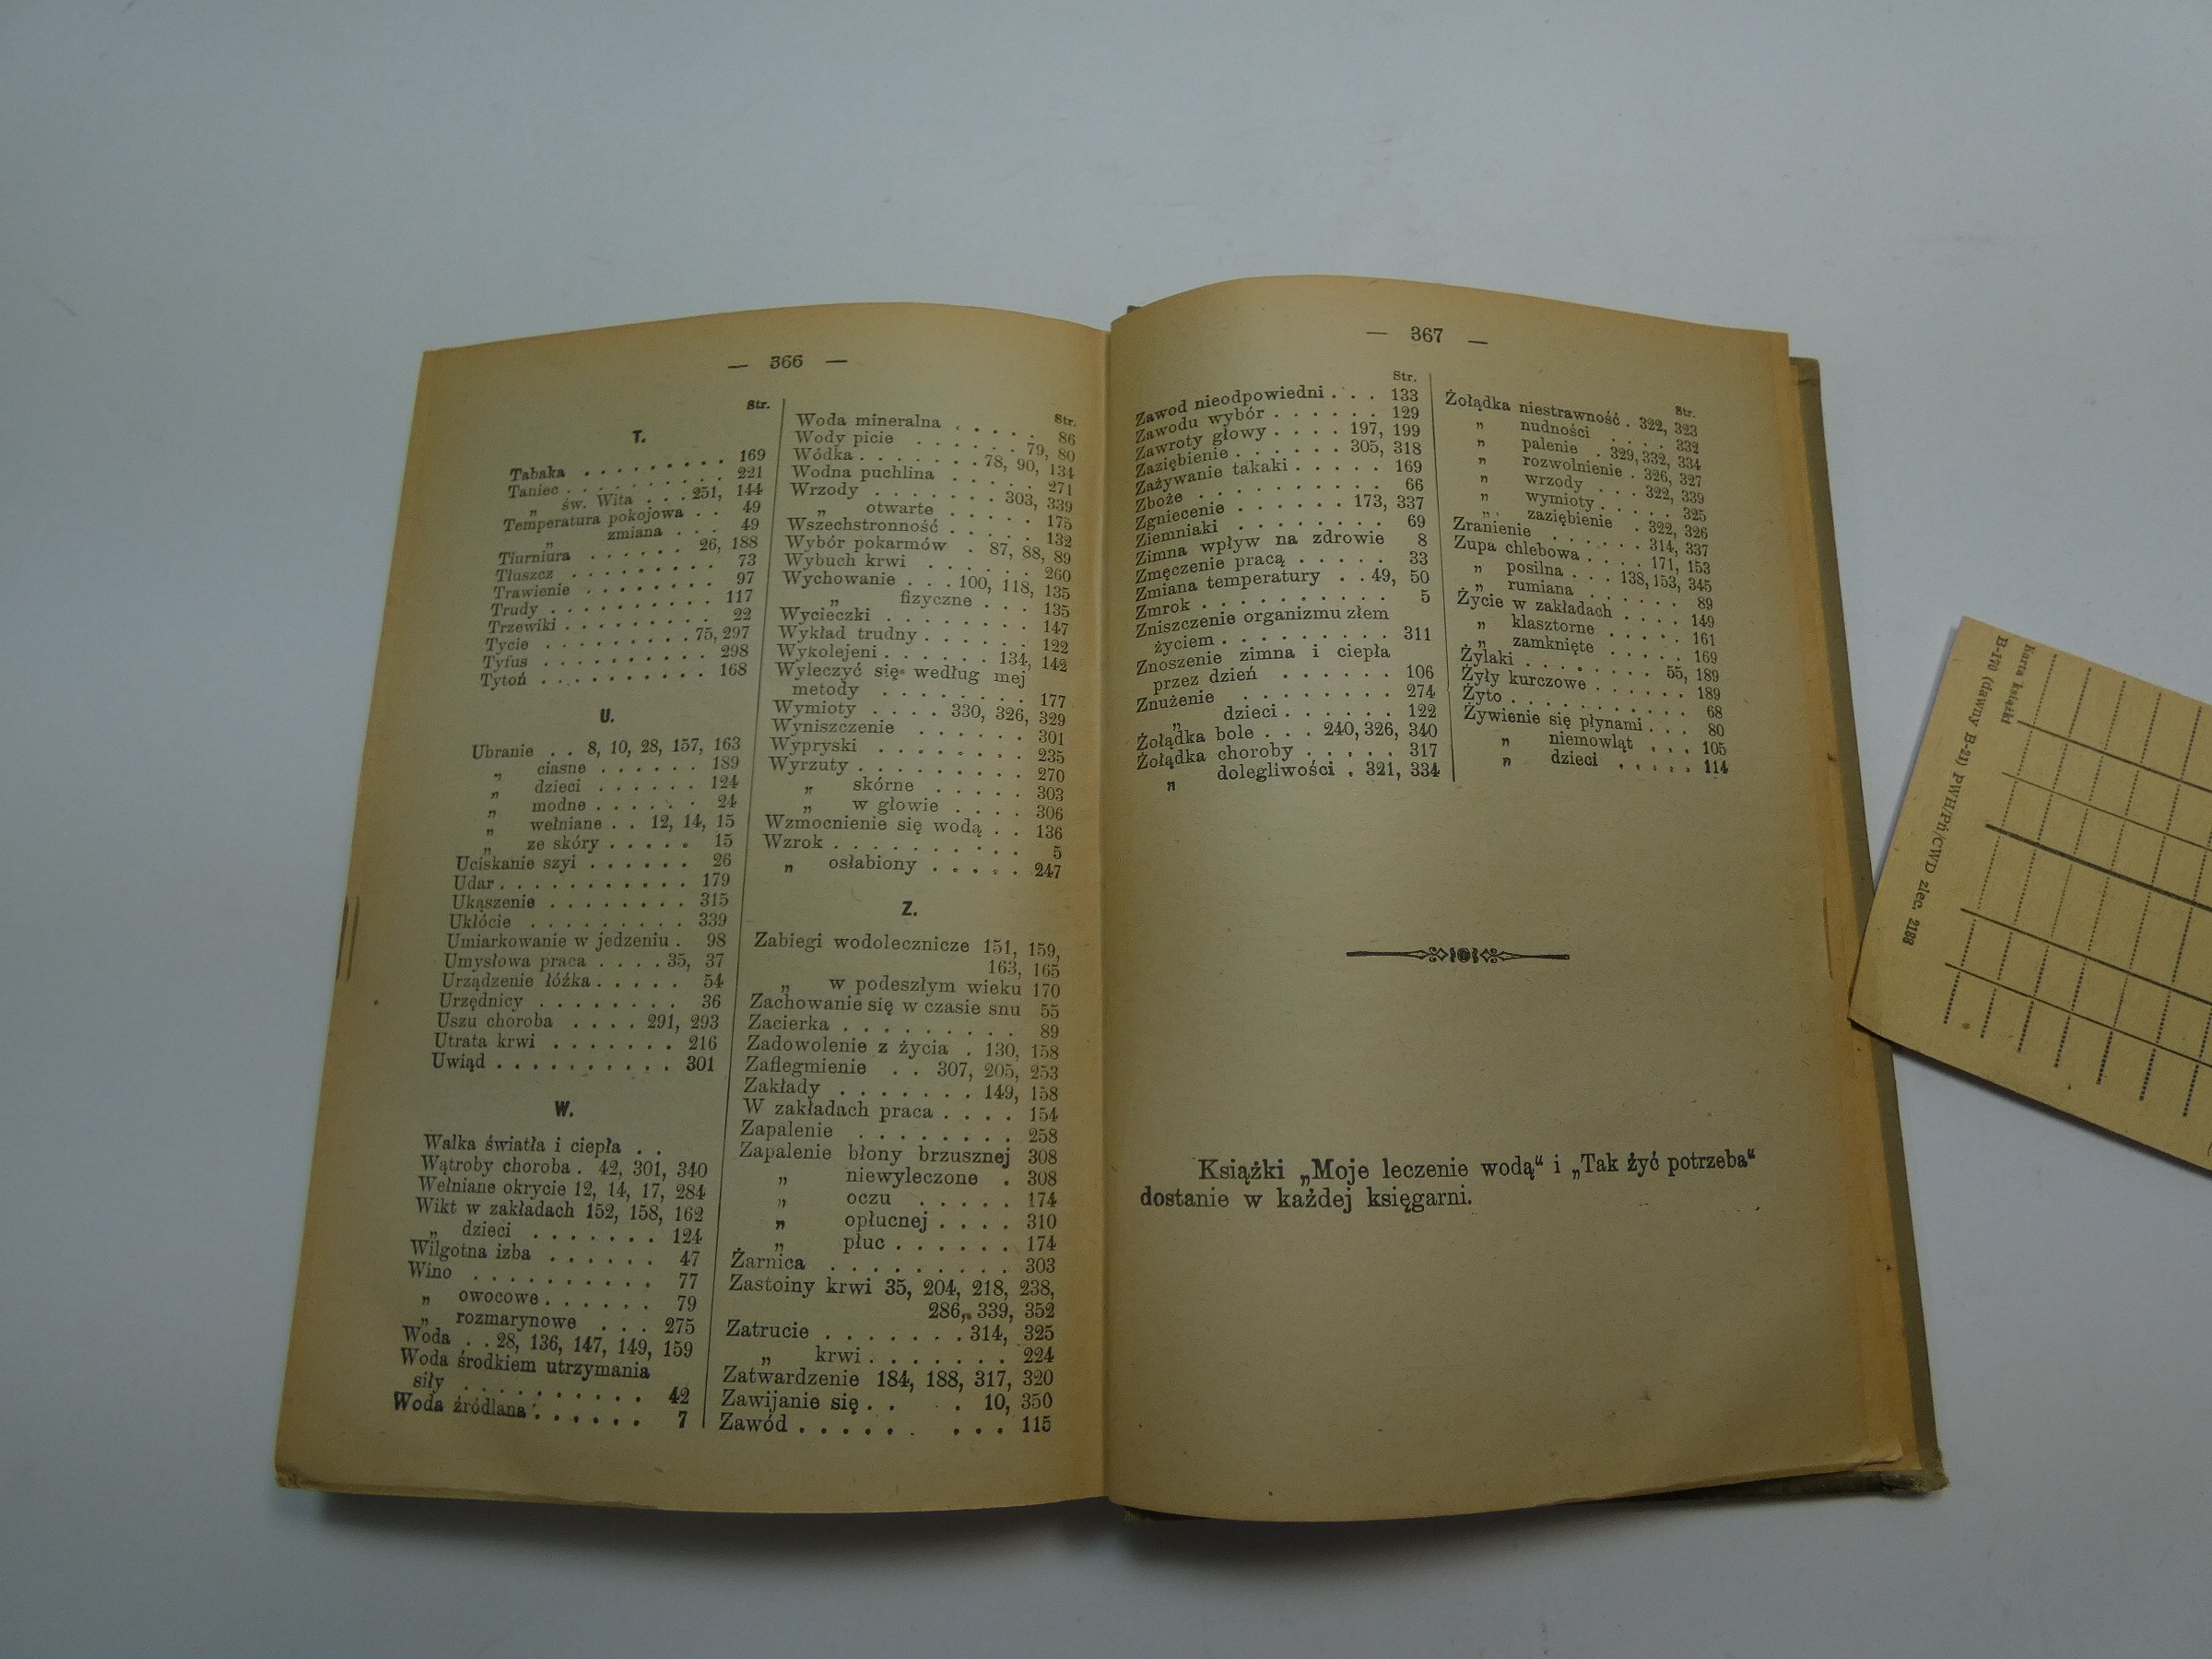 — 366 —
Str.
T.
Tabaka . . . . . . . . . 169
Taniec . . . . . . . . . . 221
„ św. Wita . . . 251, 144
Temperatura pokojowa . . 49
„ zmiana . . 49
Tiurniura . . . . . . 26, 188
Tłuszcz . . . . . . . . . 73
Trawienie . . . . . . . . 97
Trudy . . . . . . . . . . 117
Trzewiki . . . . . . . . . 22
Tycie . . . . . . . . 75, 297
Tyfus . . . . . . . . . . 298
Tytoń . . . . . . . . . . 168
U.
Ubranie . . 8, 10, 28, 157, 163
„ ciasne . . . . . . 189
„ dzieci . . . . . . 124
„ modne . . . . . . 24
„ wełniane . . 12, 14, 15
„ ze skóry . . . . . 15
Uciskanie szyi . . . . . . 26
Udar . . . . . . . . . . . 179
Ukąszenie . . . . . . . . 315
Ukłócie . . . . . . . . . 339
Umiarkowanie w jedzeniu . 98
Umysłowa praca . . . . 35, 37
Urządzenie łóżka . . . . . 54
Urzędnicy . . . . . . . . 36
Uszu choroba . . . . 291, 293
Utrata krwi . . . . . . . 216
Uwiąd . . . . . . . . . . 301
W.
Walka światła i ciepła . .
Wątroby choroba . 42, 301, 340
Wełniane okrycie 12, 14, 17, 284
Wikt w zakładach 152, 158, 162
„ dzieci . . . . . . . 124
Wilgotna izba . . . . . . 47
Wino . . . . . . . . . . 77
„ owocowe . . . . . . 79
„ rozmarynowe . . . 275
Woda . . 28, 136, 147, 149, 159
Woda środkiem utrzymania
siły . . . . . . . . . . 42
Woda źródlana . . . . . . 7
Str.
Woda mineralna . . . . . 86
Wody picie . . . . . . 79, 80
Wódka . . . . . . . 78, 90, 134
Wodna puchlina . . . . . 271
Wrzody . . . . . . . 303, 339
„ otwarte . . . . . 175
Wszechstronność . . . . . 132
Wybór pokarmów . 87, 88, 89
Wybuch krwi . . . . . . 260
Wychowanie . . . 100, 118, 135
„ fizyczne . . . 135
Wycieczki . . . . . . . . 147
Wykład trudny . . . . . . 122
Wykolejeni . . . . . . 134, 142
Wyleczyć się według mej
metody . . . . . . . . 177
Wymioty . . . . 330, 326, 329
Wyniszczenie . . . . . . 301
Wypryski . . . . . . . . 235
Wyrzuty . . . . . . . . . 270
„ skórne . . . . . 303
„ w głowie . . . . 306
Wzmocnienie się wodą . . 136
Wzrok . . . . . . . . . . 5
„ osłabiony . . . . . 247
Z.
Zabiegi wodolecznicze 151, 159,
163, 165
„ w podeszłym wieku 170
Zachowanie się w czasie snu 55
Zacierka . . . . . . . . . 89
Zadowolenie z życia . 130, 158
Zaflegmienie . . 307, 205, 253
Zakłady . . . . . . . 149, 158
W zakładach praca . . . . 154
Zapalenie . . . . . . . . 258
Zapalenie błony brzusznej 308
„ niewyleczone . 308
„ oczu . . . . . 174
„ opłucnej . . . . 310
„ płuc . . . . . . 174
Żarnica . . . . . . . . . 303
Zastoiny krwi 35, 204, 218, 238,
286, 339, 352
Zatrucie . . . . . . . 314, 325
„ krwi . . . . . . . 224
Zatwardzenie 184, 188, 317, 320
Zawijanie się . . . 10, 350
Zawód . . . . . . . . . 115
— 367 —
Str.
Zawod nieodpowiedni . . . 133
Zawodu wybór . . . . . . 129
Zawroty głowy . . . . 197, 199
Zaziębienie . . . . . . 305, 318
Zażywanie takaki . . . . . 169
Zboże . . . . . . . . . . 66
Zgniecenie . . . . . . 173, 337
Ziemniaki . . . . . . . . 69
Zimna wpływ na zdrowie 8
Zmęczenie pracą . . . . . 33
Zmiana temperatury . . 49, 50
Zmrok . . . . . . . . . . 5
Zniszczenie organizmu złem
życiem . . . . . . . . . 311
Znoszenie zimna i ciepła
przez dzień . . . . . . 106
Znużenie . . . . . . . . 274
„ dzieci . . . . . . 122
Żołądka bole . . . 240, 326, 340
Żołądka choroby . . . . . 317
„ dolegliwości . 321, 334
Str.
Żołądka niestrawność . 322, 323
„ nudności . . . . 332
„ palenie . 329, 332, 334
„ rozwolnienie . 326, 327
„ wrzody . . . 322, 339
„ wymioty . . . . . 325
„ zaziębienie . 322, 326
Zranienie . . . . . . 314, 337
Zupa chlebowa . . . . 171, 153
„ posilna . . . 138, 153, 345
„ rumiana . . . . . . 89
Życie w zakładach . . . . 149
„ klasztorne . . . . . 161
„ zamknięte . . . . . 169
Żylaki . . . . . . . . 55, 189
Żyły kurczowe . . . . . . 189
Żyto . . . . . . . . . . . 68
Żywienie się płynami . . . 80
„ niemowląt . . . 105
„ dzieci . . . . . 114
Książki „Moje leczenie wodą“ i „Tak żyć potrzeba“
dostanie w każdej księgarni.
Karta książki
B-170 (dawny B-21) PWH/Pił/CWD zlec. 2183